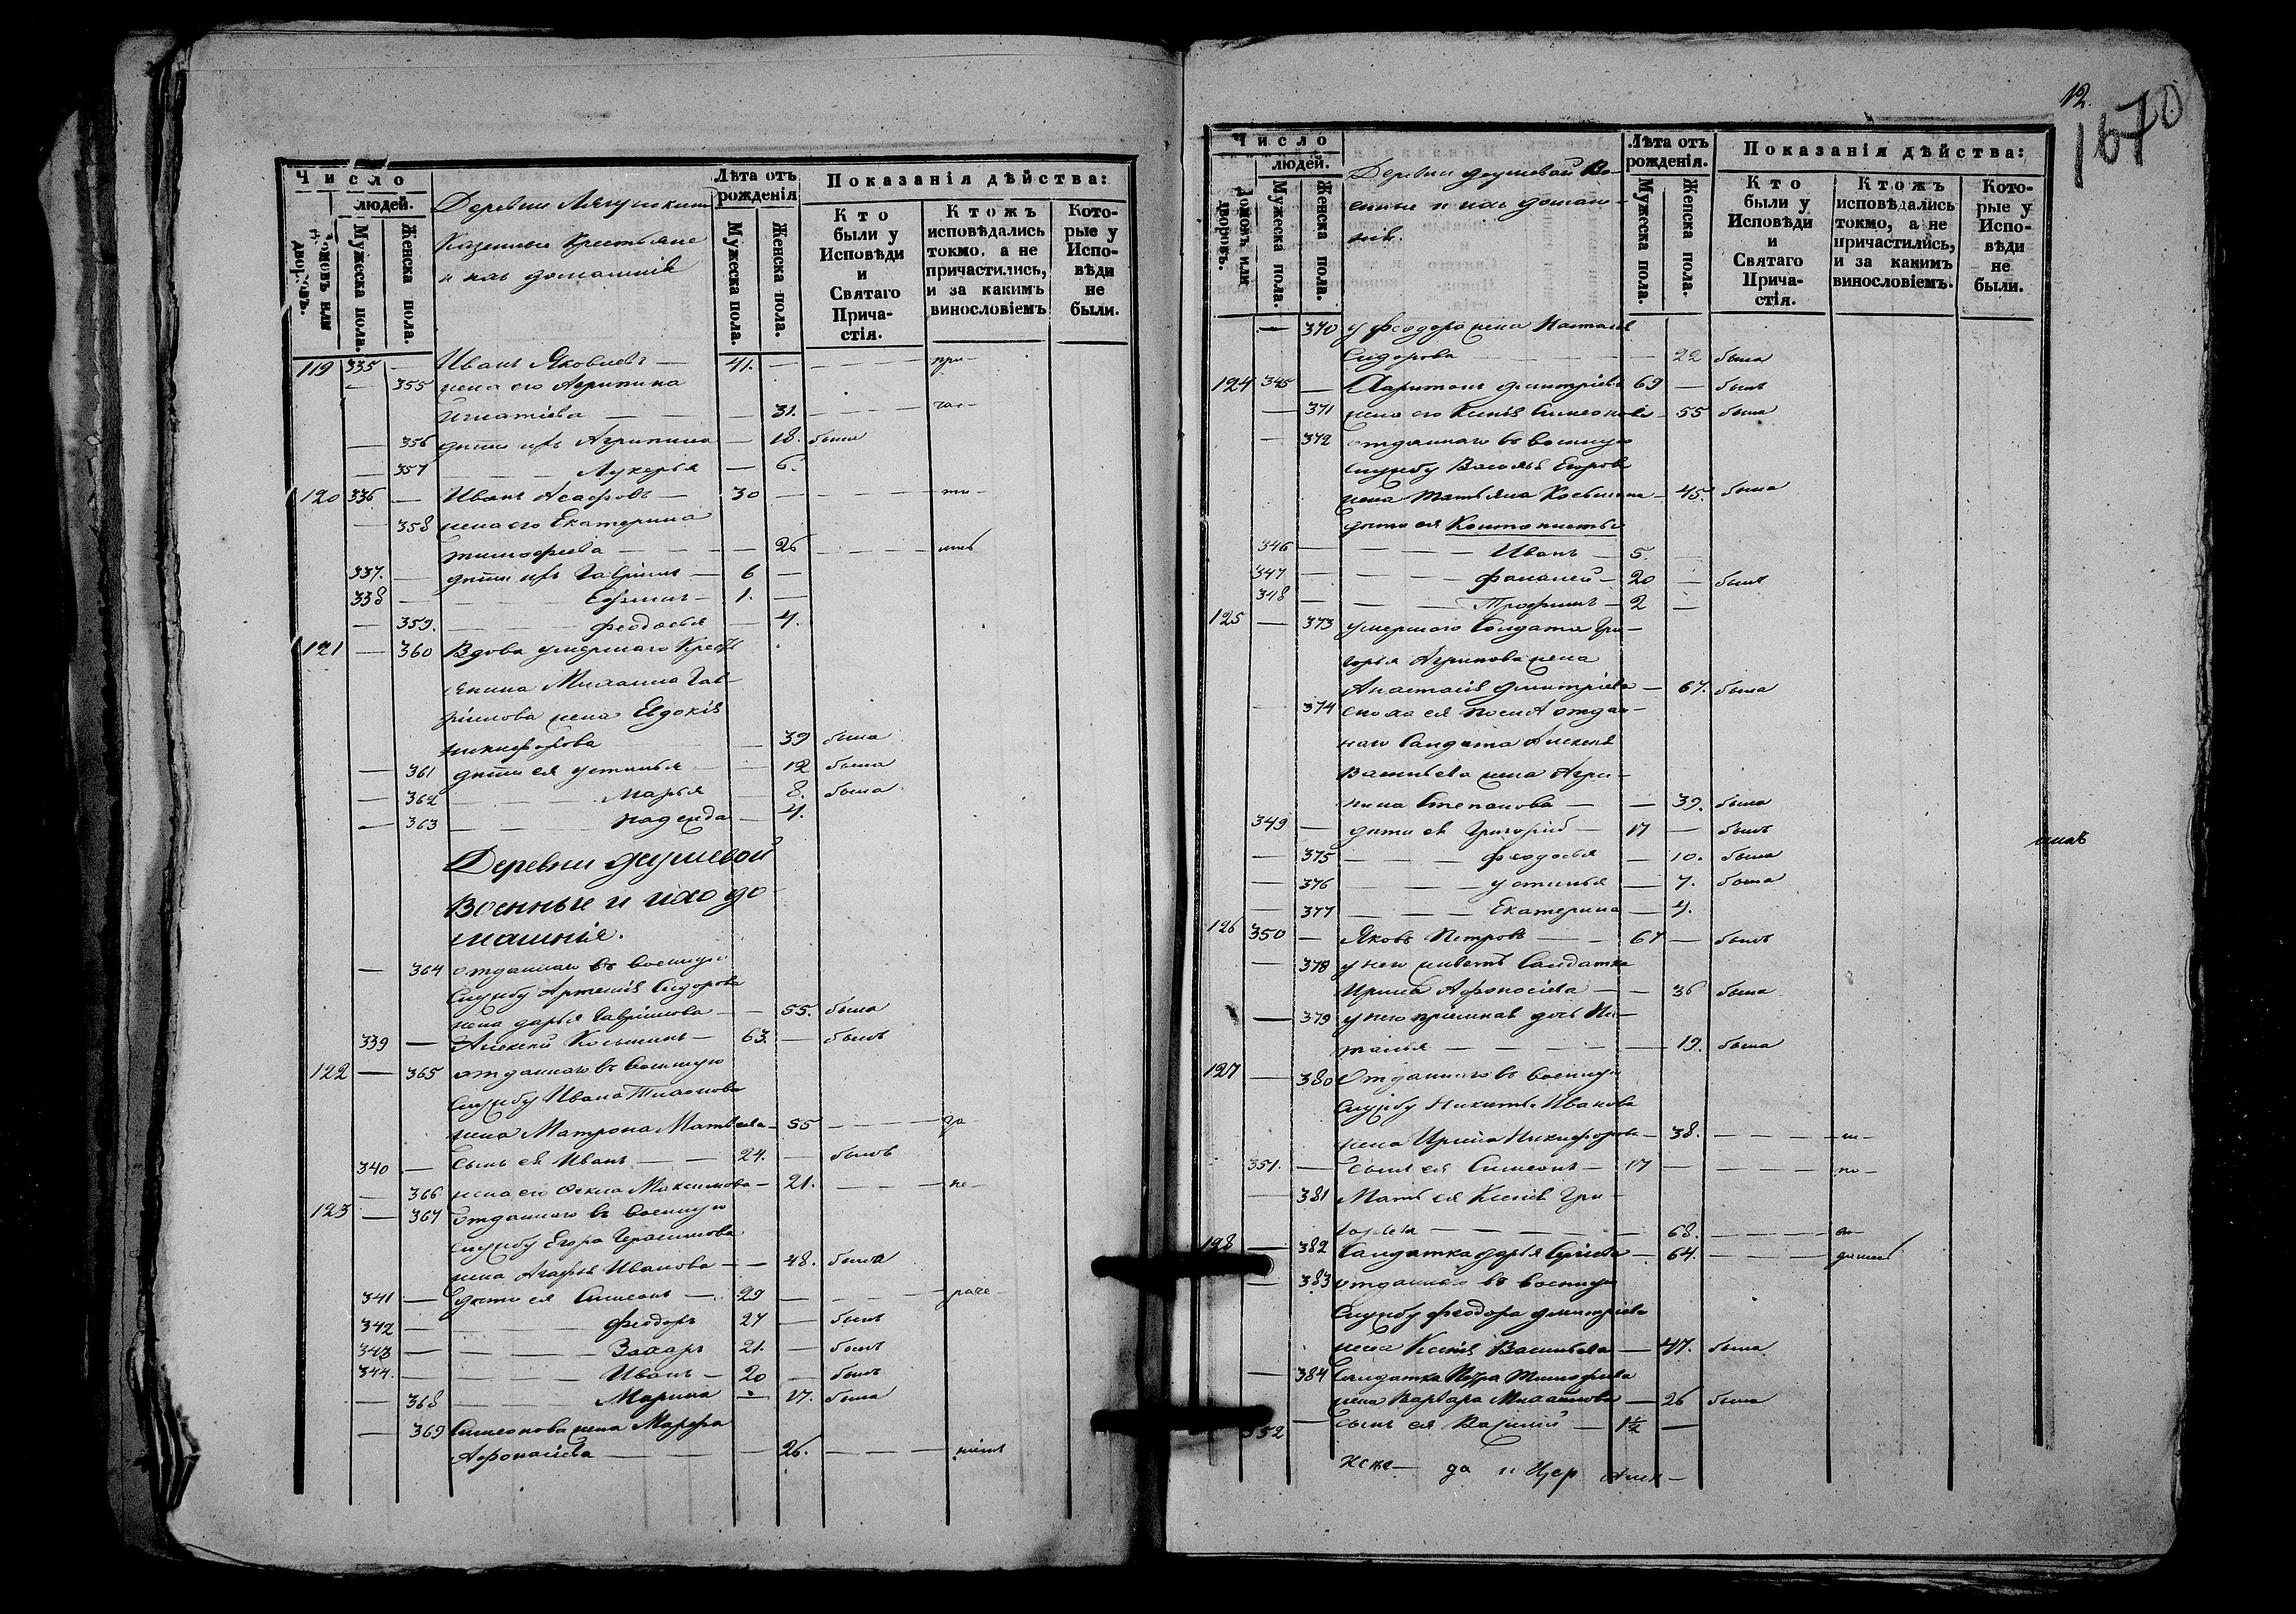 Число
людей.
домовъ или дворовъ.
Мужеска пола.
Женска пола.
Деревни Лягушкини
Казенные Крестьяне
и ихъ домашнія
Лѣта отъ рожденія
Мужеска пола.
Женска пола.
Показанія дѣйства:
Кто были у Исповѣди и Святаго Прича-стія.
Ктожъ исповѣдались токмо, а не причастились, и за какимъ винословіемъ
Кото-рые у Испо-вѣди не были.
119 335 — Иванъ Яковлевъ — 41. — — — — при-
— 355 жена его Агрипина
Игнатіева — — — 31. — — — час-
— 356 дѣти ихъ Агрипина — 18. была
— 357 — — — Лукерья — 6.
120 336 — Иванъ Асафовъ — 30 — — — — ти-
— 358 жена его Екатерина
тимофеева — — — 26 — — —
337. — дѣти ихъ Гавріилъ — 6 —
338 — — — Ефимъ — 1. —
— 359. — — — феодосья — 4.
121 — 360 Вдова умершаго Кресть
янина Михаила Гав-
ріилова жена Евдокія
никифорова — 39 была
— 361 дѣти ея устинья — 12 была
— 362 — — — Марья — 8. была
— 363 — — — надежда — 4.
Деревни душевой
Военные и ихъ до
машнія.
— 364 отданнаго въ военную
службу Артемія Сидорова
жена дарья Гавріилова — — 55. была
339 — Алексей Козьминъ — 63. — былъ
122 — 365 отданнаго въ военную
службу Ивана
жена Матрона Матвѣева — 55 — — — за-
340 — сынъ ея Иванъ — — 24. — былъ
— 366 жена его Фекла Максимова — 21. — — — не-
123 — 367 отданнаго въ военную
службу Егора Герасимова
жена Агафья Иванова — — 48. была
341 — дѣти ея Симеонъ — 29 — — — раче-
342 — — — феодоръ 24 — былъ
343 — — — Захаръ 21. — былъ
344. — — — Иванъ — 20 — былъ
— 368 — — — Марина — 17. была
— 369 Симеонова жена Марфа
Афонасіева — — 26. — — — ніемъ
12.
167
70
Число
людей.
домовъ или дворовъ.
Мужеска пола.
Женска пола.
Деревни душевой Во-
енные и ихъ домаш-
нія.
Лѣта отъ рожденія.
Мужеска пола.
Женска пола.
Показанія дѣйства:
Кто были у Исповѣди и Святаго Прича-стія.
Ктожъ исповѣдались токмо, а не причастились, и за какимъ винословіемъ.
Кото-рые у Испо-вѣди не были.
— 370 у феодора жена Наталья
Сидорова — — — 22 была
124 345 — Харитонъ дмитріевъ 69 — былъ
— 371 жена его Ксенія Симеонова — 55 была
— 372 отданнаго въ военную
службу Василья Егорова
жена татьяна Козьмина — 45. была
дѣти ея Контонисты
346 — — — Иванъ — 5.
347 — — — — 20 — былъ
348 — — — Трофимъ — 2 —
125 — 373 умершаго Солдата Гри-
горья жена
Анастасія дмитріева — 67. была
— 374 сноха ея после отдан-
наго Солдата Алексея
Васильева жена Агри-
пина Степанова — — 39. была
349 — дѣти ея Григорій — 17 — былъ
— 375 — — — феодосья — 10. была
— 376 — — — устинья — 7. была
— 377 — — — Екатерина — 4.
126 350 — Яковъ Петровъ — — 67 — былъ
— 378 у него живетъ Солдатка
Ирина Афонасіева — — 36 была
— 379 у него пріемная дочь На-
талья — — — 19. была
127 — 380 Отданнаго въ военную
службу Никиты Иванова
жена Ирина Никифорова — 38. — — — —
351. — Сынъ ея Симеонъ — 17 — — — по-
— 381 Мать ея Ксенія Гри-
горьева — — — 68. — — —
128 — 382 Солдатка дарья — 64. — — —
— 383 отданнаго въ военную
службу феодора дмитріева
жена Ксенія Васильева — 47. была
— 384 Солдатка Петра тимофеева
жена Варвара Михаилова — 26 была
352 — сынъ ея Василій — 1½ —
да и Цер Алек-